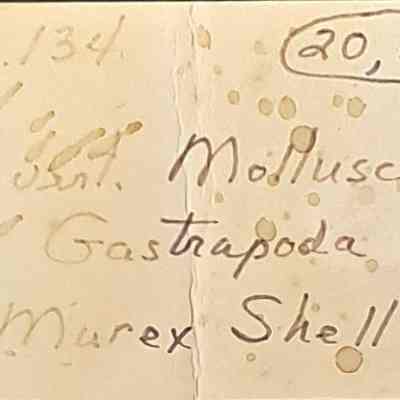 .134. 20,
Mollusc
Gastrapoda
Murex Shell